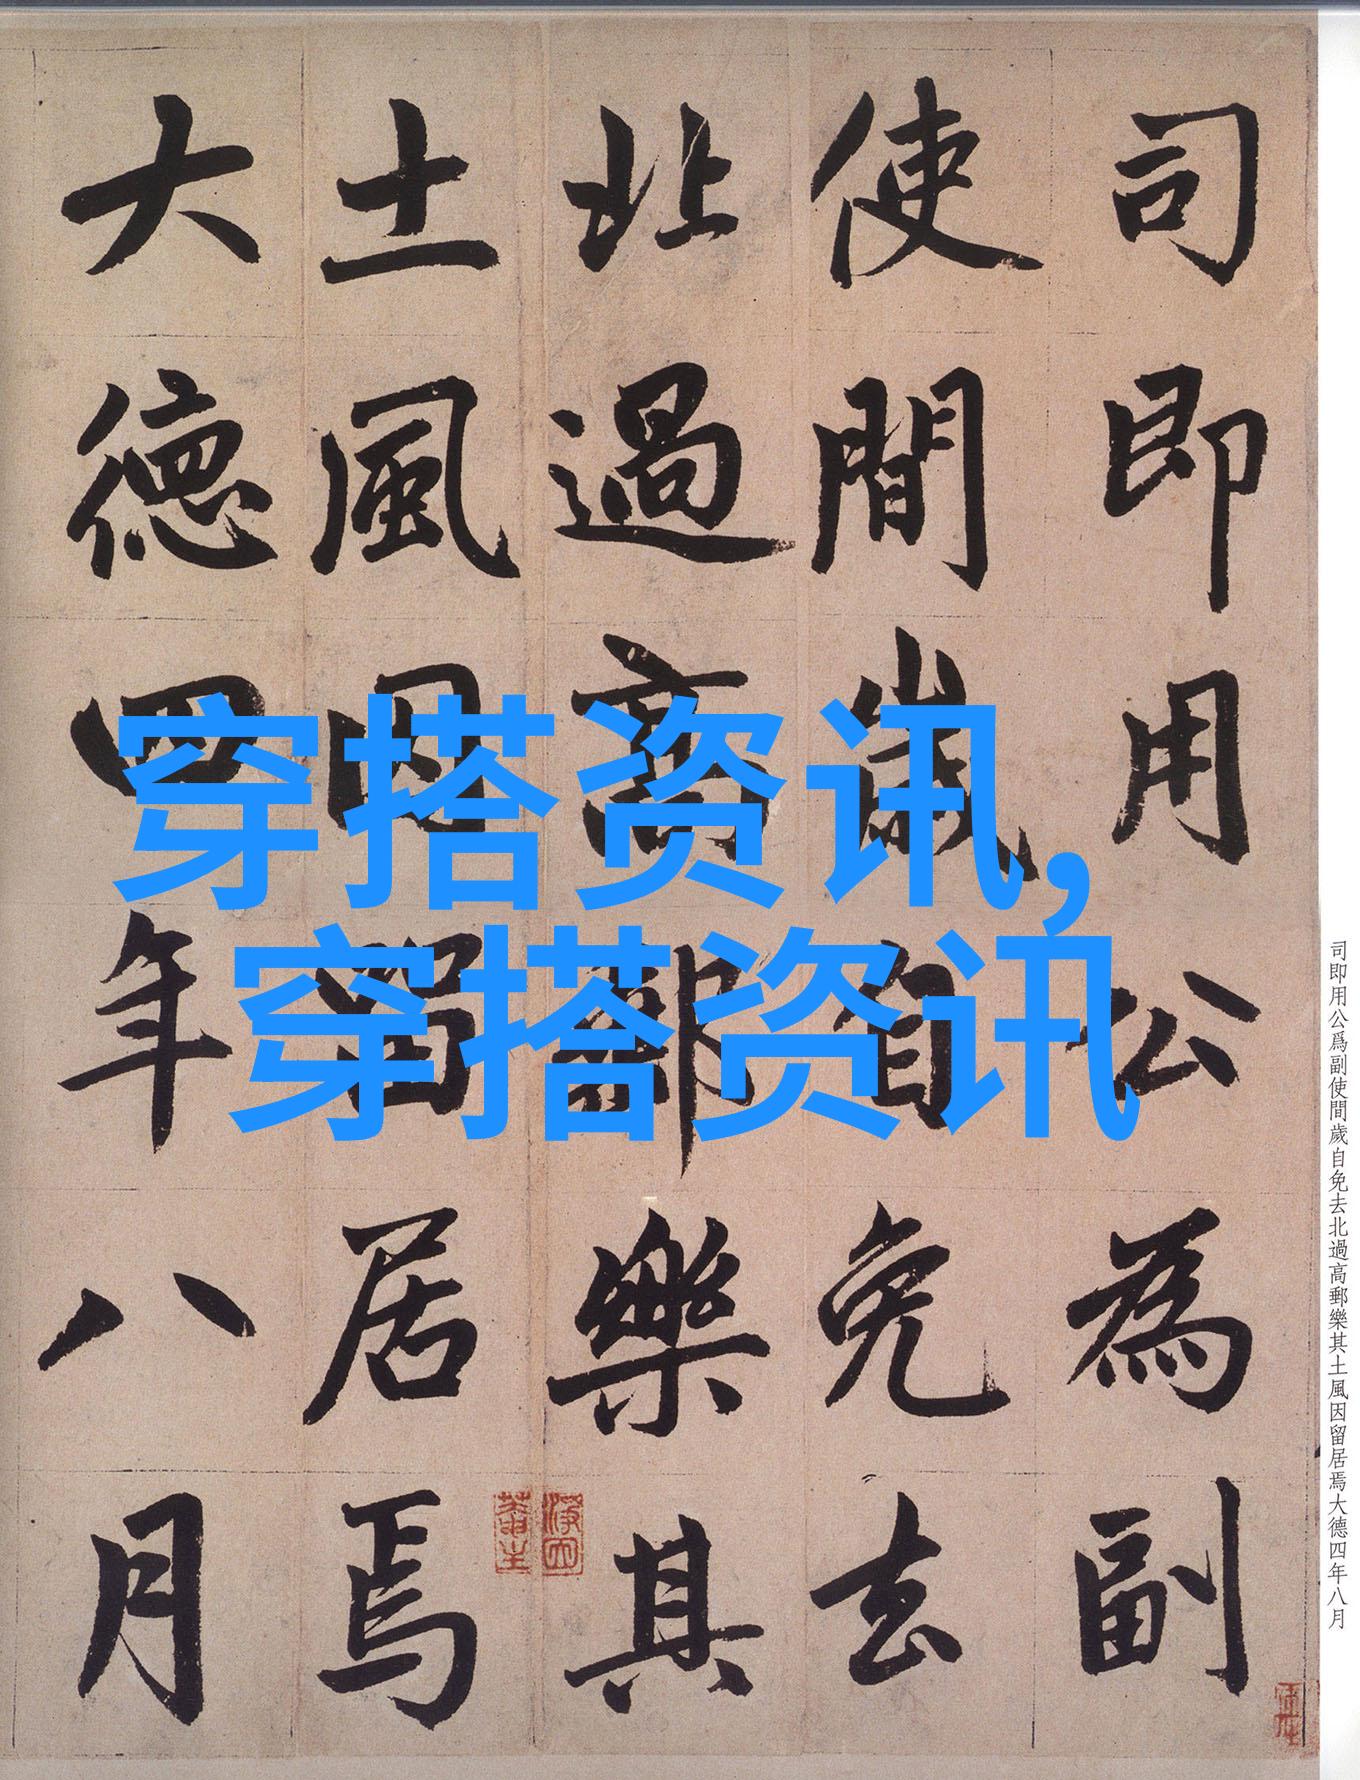 司即用公為副
使間歲自免去
北過高郵樂其
土風因留居焉
大德四年八月
穿搭资讯,
穿搭资讯
司即用公爲副使間歲自免去北過高郵樂其土風因留居焉大德四年八月